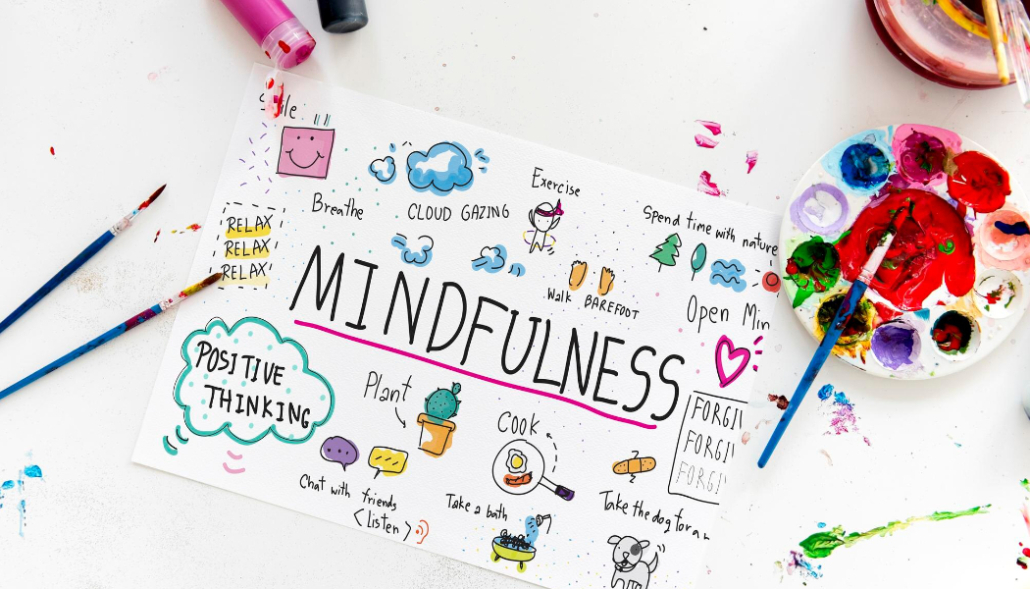 Breathe
CLOUD GAZING
Exercise
Spend time with nature
RELAX
RELAX
RELAX
Walk BAREFOOT
Open Min
MINDFULNESS
POSITIVE
THINKING
Plant
Cook
FORGI
FORGI
FORGI
Chat with friends
<listen>
Take a bath
Take the dog for a